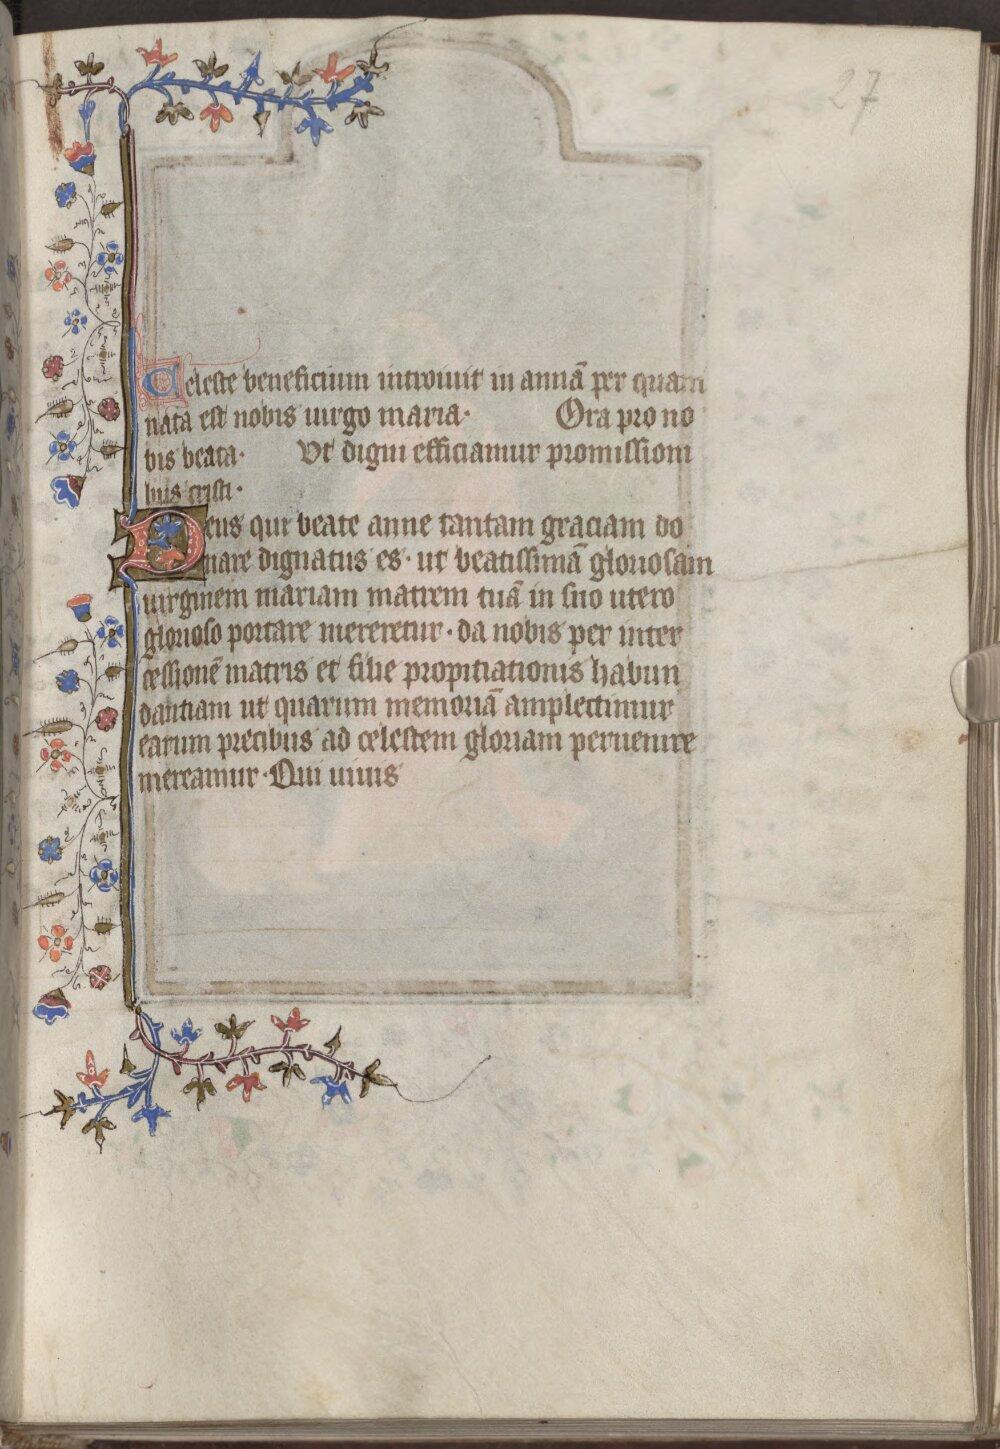 27
Celeste beneficium introiuit in annā per quam
nata est nobis uirgo maria· Ora pro no
bis beata· Vt digni efficiamur promissioni
bus cristi·
Deus qui beate anne tantam graciam do
nare dignatus es· ut beatissimā gloriosam
uirginem mariam matrem tuā in suo utero
glorioso portare mereretur· da nobis per inter
cessionē matris et filie propitiationis habun
dantiam ut quarum memoriā amplectimur
earum precibus ad celestem gloriam peruenire
mereamur· Qui uiuis